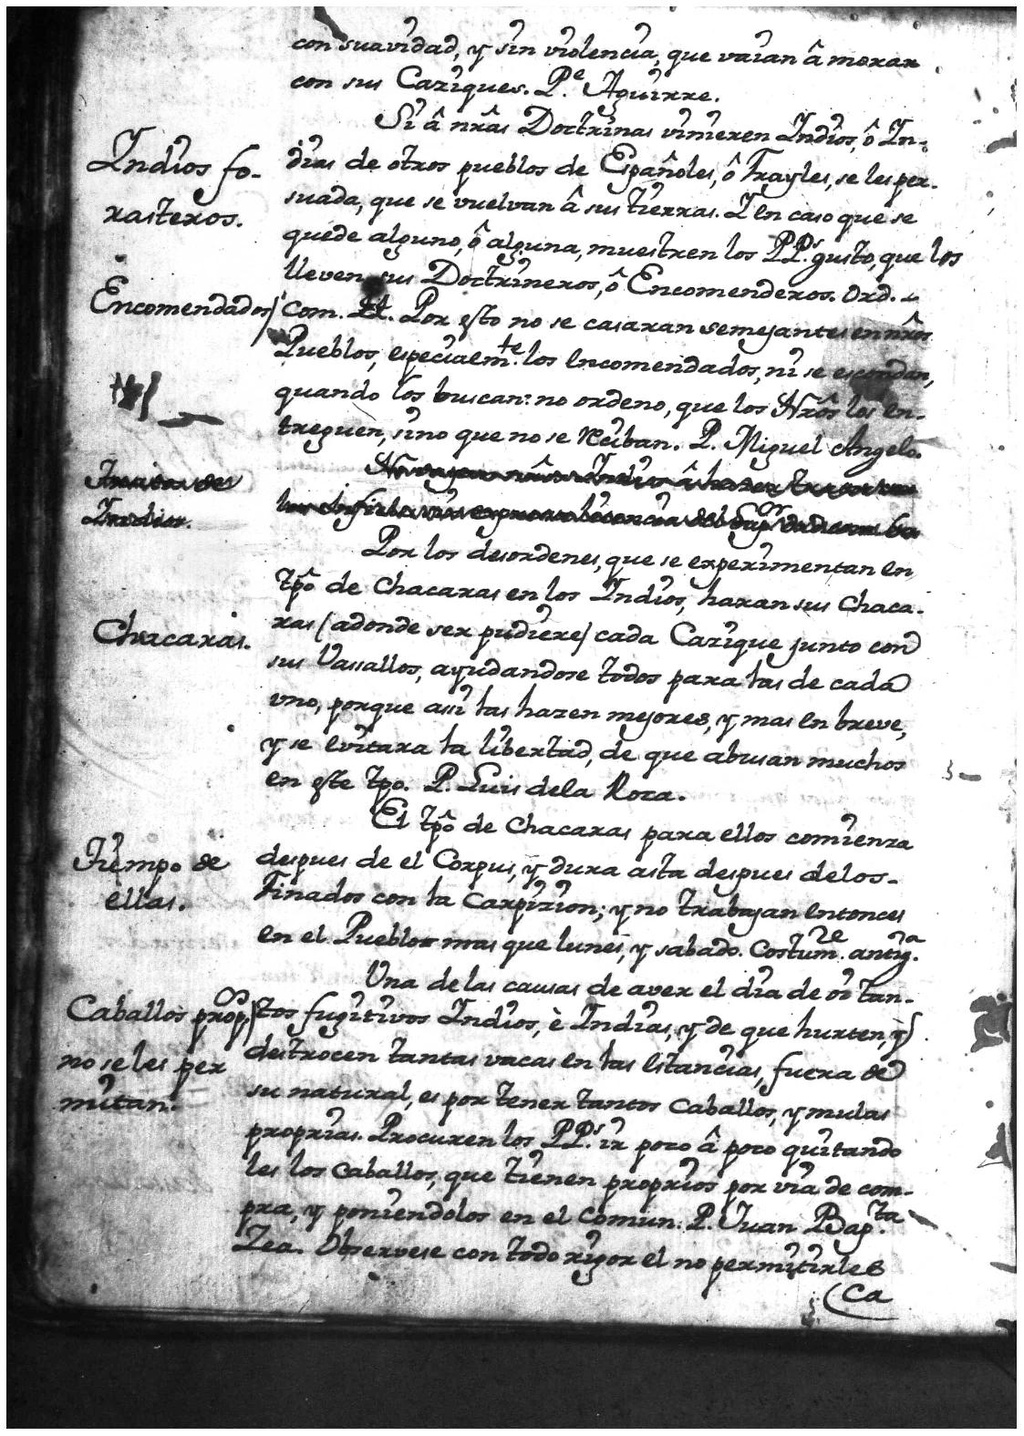 con suavidad, y sin violencia, que vaian â morar
con sus Caziques. Pe. Aguirre.
Si â nrâs Doctrinas vinieren Indios, ô In-
Indios fo-
rasteros.
dias de otros pueblos de Españoles, ô Frayles, se les per-
suada, que se vuelvan â sus tierras. I en caso que se
quede alguno, ô alguna, muestren los PPs. gusto, que los
lleven sus Doctrineros, ô Encomenderos. Ord.
Encomendados
Com. Por esto no se casaran semejantes en nrôs
Pueblos, especiaemte. los encomendados, ni se escondan,
quando los buscan: no ordeno, que los Nrôs los en-
treguen, sino que no se reciban. P. Miguel Angelo.
Indios.
Por los desordenes, que se experimentan en
tpô de Chacaras en los Indios, haran sus Chaca-
Chacaras.
ras (adonde ser pudiere) cada Cazique junto con
sus Vasallos, ayudandose todos para las de cada
uno, porque assi las hazen mejores, y mas en breve,
y se evitara la libertad, de que abusan muchos
en este tpo. P. Luis dela Roca.
El tpô de Chacaras para ellos comienza
Tiempo de
ellas.
despues de el Corpus, y dura asta despues de los
Finados con la Carpizion; y no trabajan entonces
en el Pueblo mas que lunes, y sabado. Costumre. antiga.
Una de las causas de aver el dia de oi tan-
Caballos propos
no se les per
mitan.
tos fugitivos Indios, è Indias, y de que hurten, y
destrocen tantas vacas en las estancias, fuera de
su natural, es por tener tantos Caballos, y mulas
proprias. Procuren los PPs. ir poco â poco quitando
les los Caballos, que tienen proprios por via de com-
pra, y poniendolos en el comun. P. Juan Bapta.
Zea. Observese con todo rigor el no permitirles
(Ca